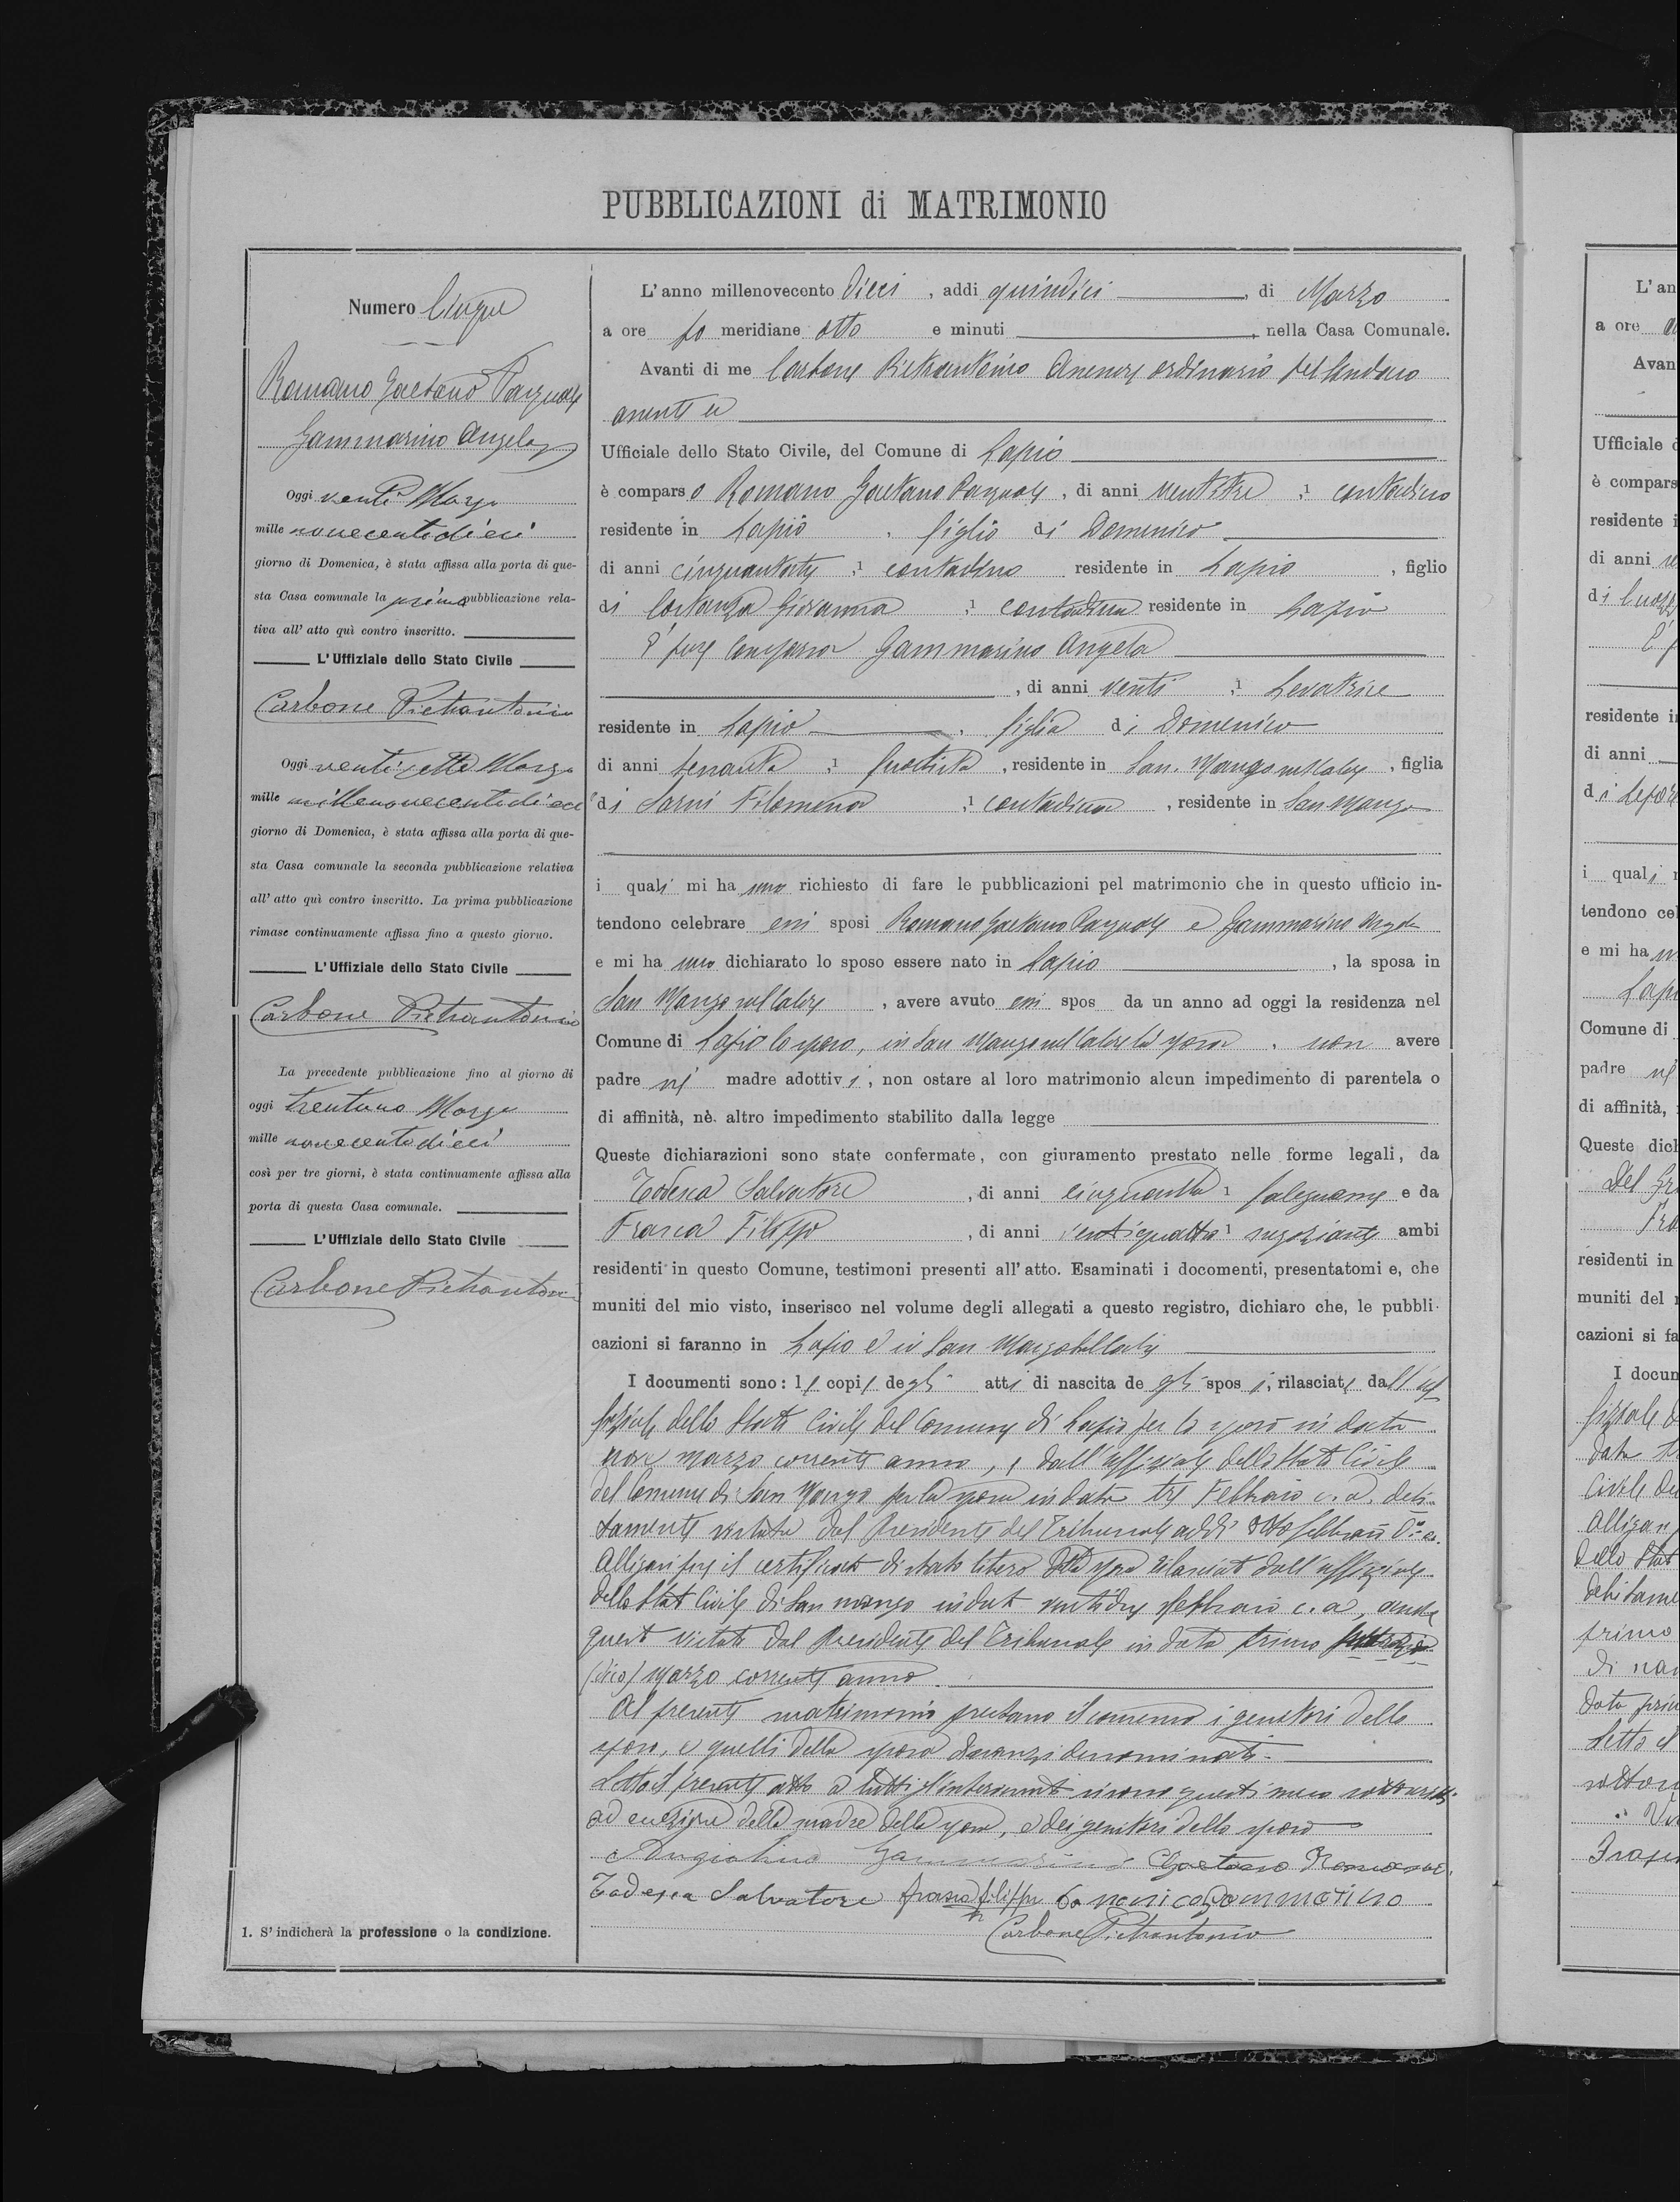 PUBBLICAZIONI di MATRIMONIO
Numero Cinque
Romano Gaetano Pasquale
Gammarino Angela
Oggi venti Marzo
mille novecentodieci
giorno di Domenica, è stata affissa alla porta di que-
sta Casa comunale la prima pubblicazione rela-
tiva all' atto quì contro inscritto.
L'Uffiziale dello Stato Civile
Carbone Pietrantonio
Oggi ventisette Marzo
mille millenovecentodieci
giorno di Domenica, è stata affissa alla porta di que-
sta Casa comunale la seconda pubblicazione relativa
all' atto quì contro inscritto. La prima pubblicazione
rimase continuamente affissa fino a questo giorno.
L'Uffiziale dello Stato Civile
Carbone Pietrantonio
La precedente pubblicazione fino al giorno di
oggi trentuno Marzo
mille novecentodieci
così per tre giorni, è stata continuamente affissa alla
porta di questa Casa comunale.
L'Uffiziale dello Stato Civile
Carbone Pietrantonio
1. S' indicherà la professione o la condizione.
L'anno millenovecento dieci, addì quindici, di Marzo
a ore po meridiane otto e minuti, nella Casa Comunale.
Avanti di me Carbone Pietrantonio Assessore ordinario pel Sindaco
assente ed
Ufficiale dello Stato Civile, del Comune di Lapio
è comparso Romano Gaetano Pasquale, di anni ventitre, 1 contadino
residente in Lapio, figlio di Domenico
di anni cinquantotto, 1 contadino residente in Lapio, figlio
di Costanza Giovanna, 1 contadina residente in Lapio
È pure comparsa Gammarino Angela
, di anni venti, 1 Levatrice
residente in Lapio, figlia di Domenico
di anni sessanta, 1, residente in San Mango sul Calore, figlia
di Sarni Filomena, 1 contadina, residente in San Mango
i quali mi hanno richiesto di fare le pubblicazioni pel matrimonio che in questo ufficio in-
tendono celebrare essi sposi Romano Gaetano Pasquale e Gammarino Angela
e mi hanno dichiarato lo sposo essere nato in Lapio, la sposa in
San Mango sul Calore, avere avuto essi spos da un anno ad oggi la residenza nel
Comune di Lapio lo sposo, in San Mango sul Calore la sposa, non avere
padre nè madre adottivi, non ostare al loro matrimonio alcun impedimento di parentela o
di affinità, nè altro impedimento stabilito dalla legge
Queste dichiarazioni sono state confermate, con giuramento prestato nelle forme legali, da
Todesca Salvatore, di anni cinquanta 1 falegname e da
Frasca Filippo, di anni ventiquattro 1 negoziante ambi
residenti in questo Comune, testimoni presenti all' atto. Esaminati i documenti, presentatomi e, che
muniti del mio visto, inserisco nel volume degli allegati a questo registro, dichiaro che, le pubbli-
cazioni si faranno in Lapio e in San Mango sul Calore
I documenti sono: le copie degli atti di nascita degli sposi, rilasciate dall'uf
fiziale dello Stato Civile del Comune di Lapio per lo sposo in data
nove marzo corrente anno, e dall'uffiziale dello Stato Civile
del Comune di San Mango per la sposa in data tre Febbraio c. a. debi
tamente vistata dal Presidente del Tribunale addì otto febbraio c. a.
Alligasi pure il certificato di stato libero della sposa rilasciato dall'uffiziale
dello Stato Civile di San Mango in data ventidue febbraio c. a, anche
questo vistato dal Presidente del Tribunale in data primo febbraio
(dico) Marzo corrente anno.
Al presente matrimonio prestano il consenso i genitori dello
sposo, e quelli della sposa dinanzi denominati.
Letto il presente atto a tutti gl'intervenuti si sono questi meco sottoscritti
ad eccezione della madre della sposa, e dei genitori dello sposo
Angiolina Gammarino Gaetano Romano
Todesca Salvatore Frasca Filippo Domenico Gammarino
Carbone Pietrantonio
L' an
a ore
Avan
Ufficiale d
è compars
residente i
di anni
di
residente i
di anni
di
i quali
tendono cel
e mi ha
Lapi
Comune di
padre nè
di affinità,
Queste dich
Del
residenti in
muniti del
cazioni si fa
I docum
fiziale d
data
Civile de
Alligan
dello Stat
debitame
primo
di nas
data prim
Letto il
sottos